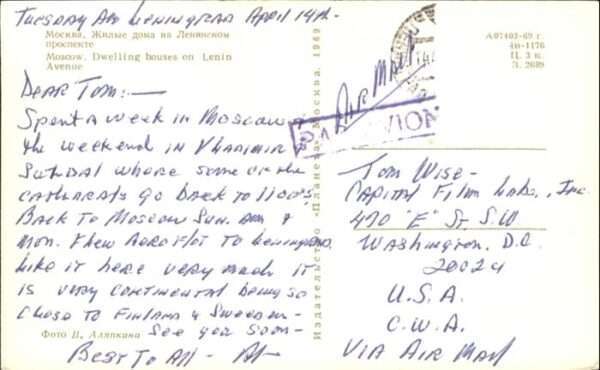 Tuesday AM Leningrad April 14th-
Москва. Жилые дома на Ленинском
проспекте
Moscow. Dwelling houses on Lenin
Avenue
А07403-69 г.
Ц. 3 к.
Издательство «Планета» Москва. 1969
Air Mail
PAR AVION
Dear Tom:—
Spent a week in Moscow &
the weekend in Vladimir &
Suzdal where some of the
cathedrals go back to 1100's.
Back to Moscow Sun. AM &
Mon. flew Aeroflot to Leningrad.
Like it here very much it
is very continental being so
close to Finland & Sweden-
See you soon-
Best To All -
Фото П. Аляпкина
Tom Wise-
Capital Film Labs., Inc.
470 "E" St. S.W
Washington, D.C.
20024
U.S.A.
С.Ш.А.
VIA AIR Mail